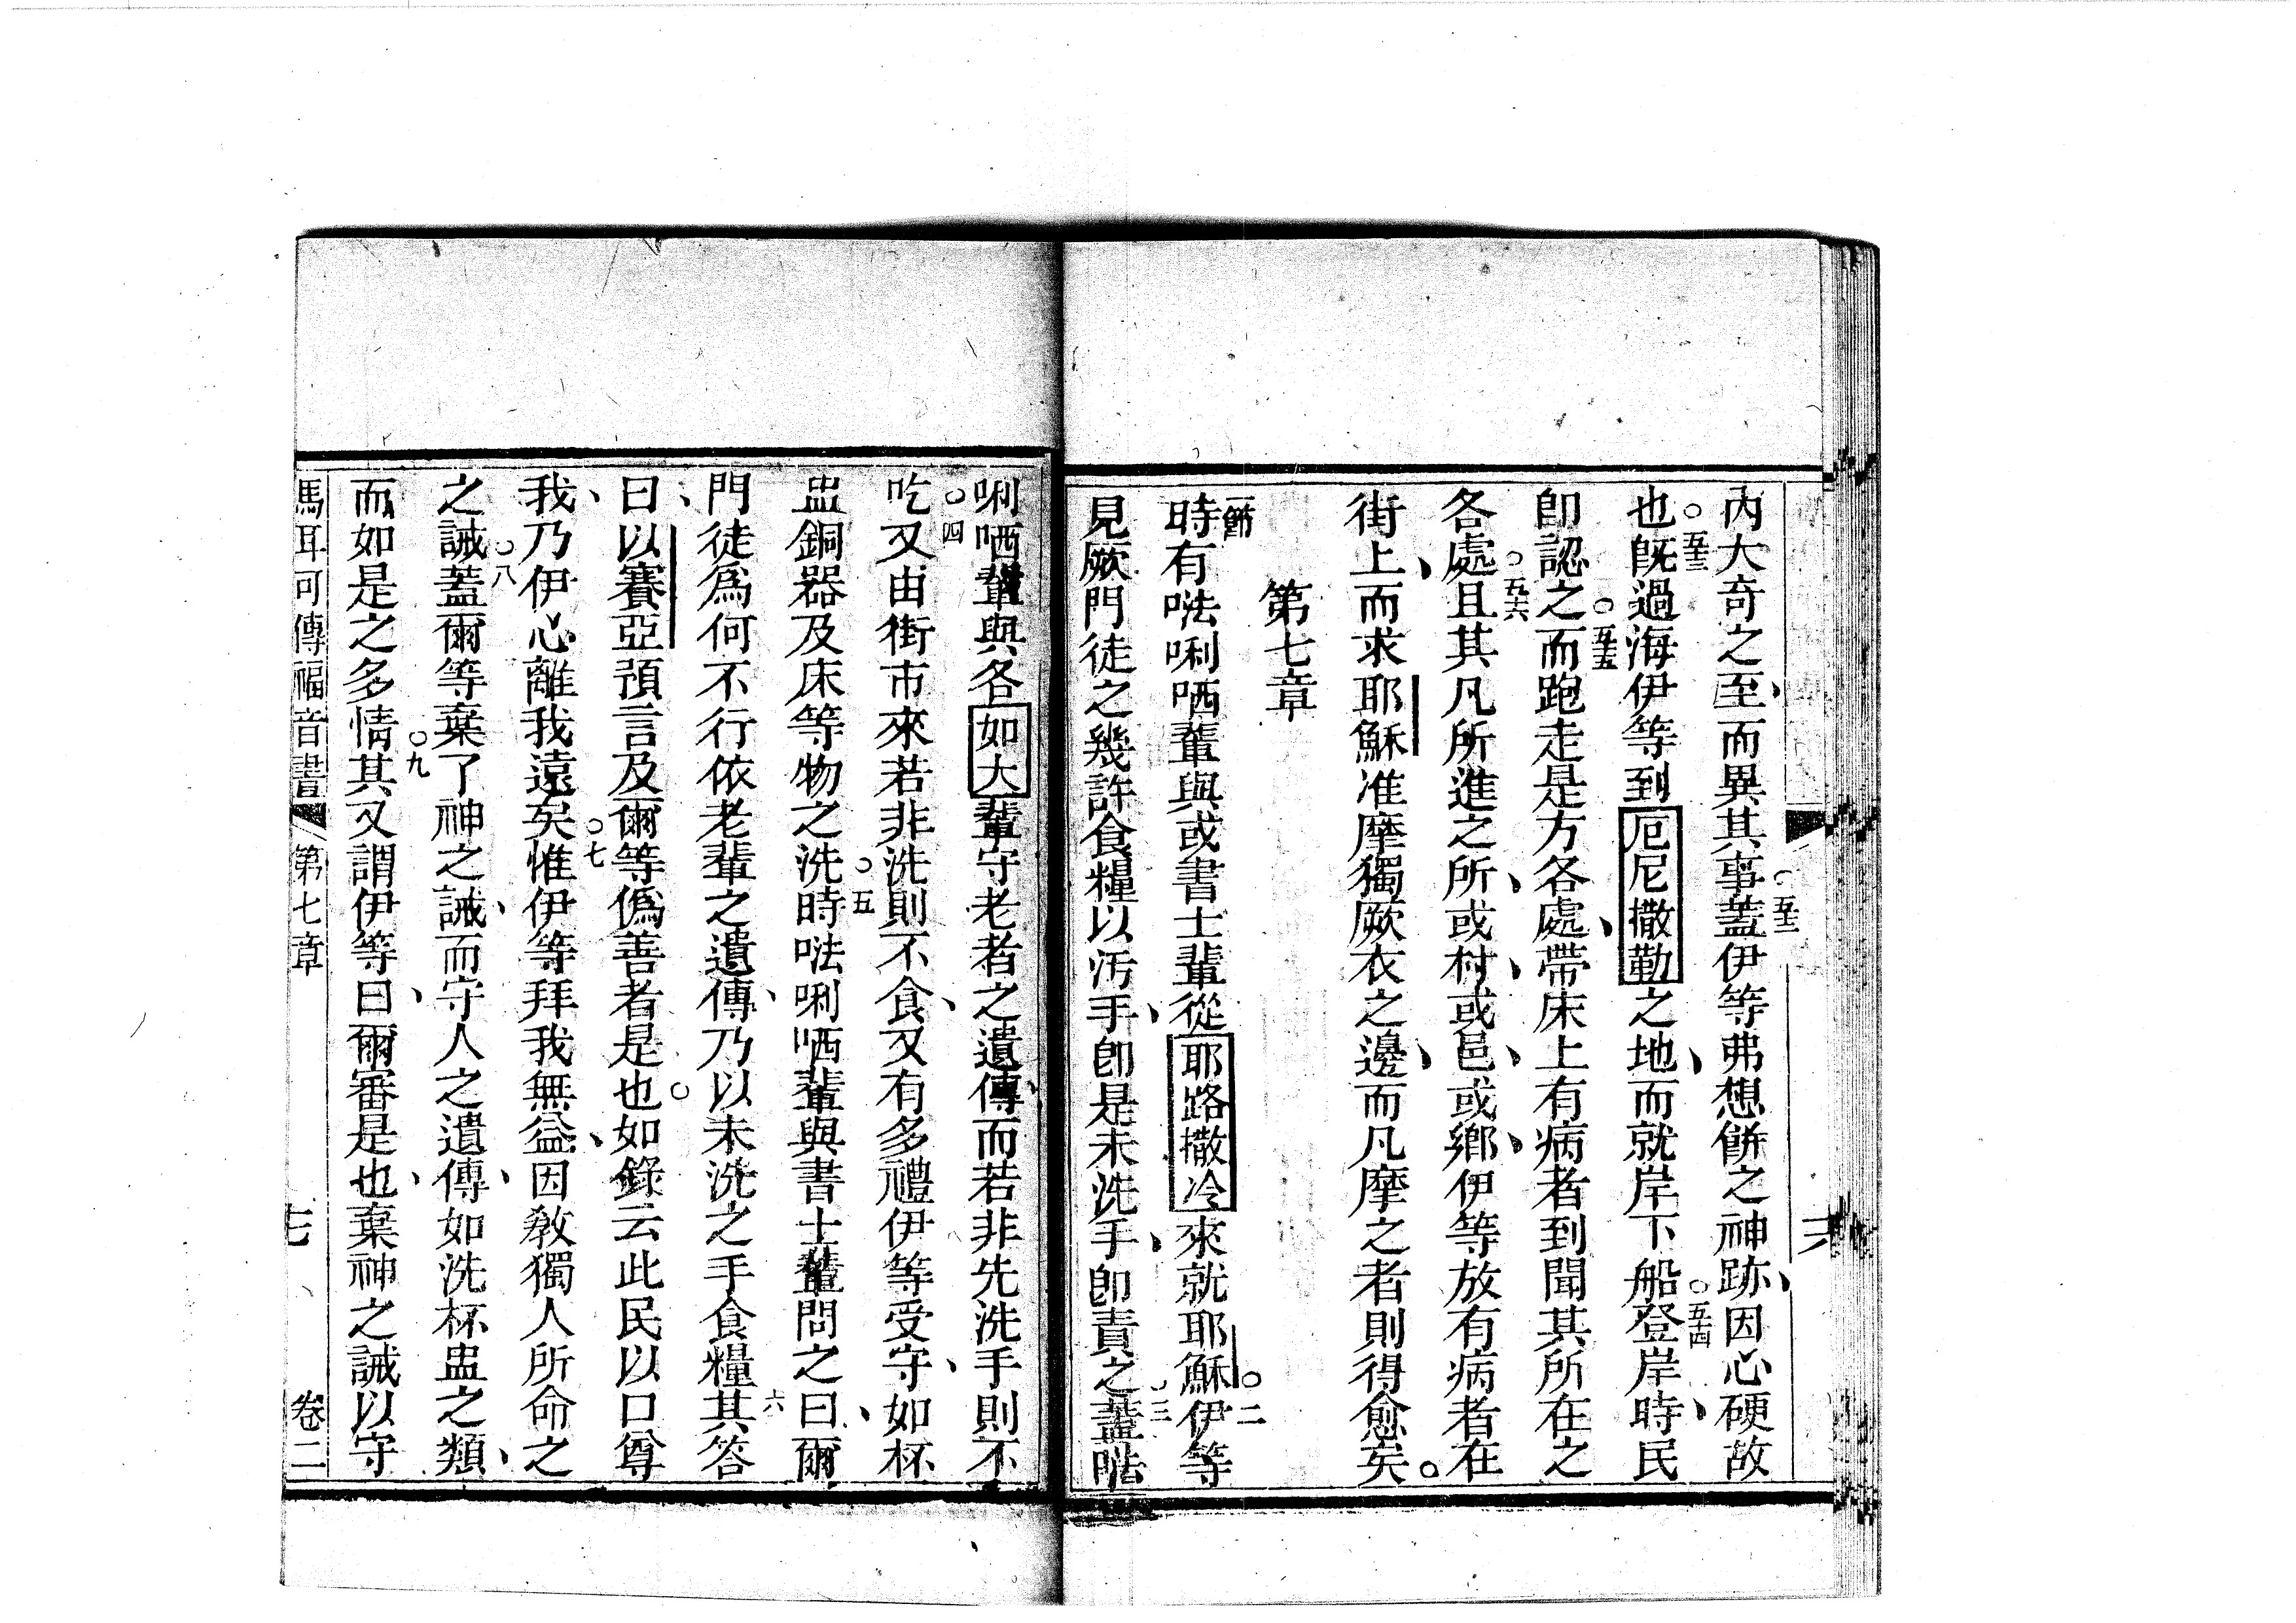 內大奇之至而異其事蓋伊等弗想餅之神跡因心硬故
也旣過海伊等到厄尼撒勒之地而就岸下船登岸時民
卽認之而跑走是方各處帶床上有病者到聞其所在之
各處且其凡所進之所或村或邑或鄉伊等放有病者在
街上而求耶穌准摩獨厥衣之邊而凡摩之者則得愈矣
第七章
時有𠵽唎哂輩與或書士輩從耶路撒冷來就耶穌伊等
見厥門徒之幾許食糧以汚手卽是未洗手卽責之蓋𠵽
唎哂輩與各如大輩守老者之遺傳而若非先洗手則不
吃又由街市來若非洗則不食又有多禮伊等受守如杯
盅銅器及床等物之洗時𠵽唎哂輩與書士輩問之曰爾
門徒爲何不行依老輩之遺傳乃以未洗之手食糧其答
曰以賽亞預言及爾等僞善者是也如錄云此民以口尊
我乃伊心離我遠矣惟伊等拜我無益因敎獨人所命之
之誡蓋爾等棄了神之誡而守人之遺傳如洗杯盅之類
而如是之多情其又謂伊等曰爾審是也棄神之誡以守
馬耳可傳福音書 第七章 七 卷二